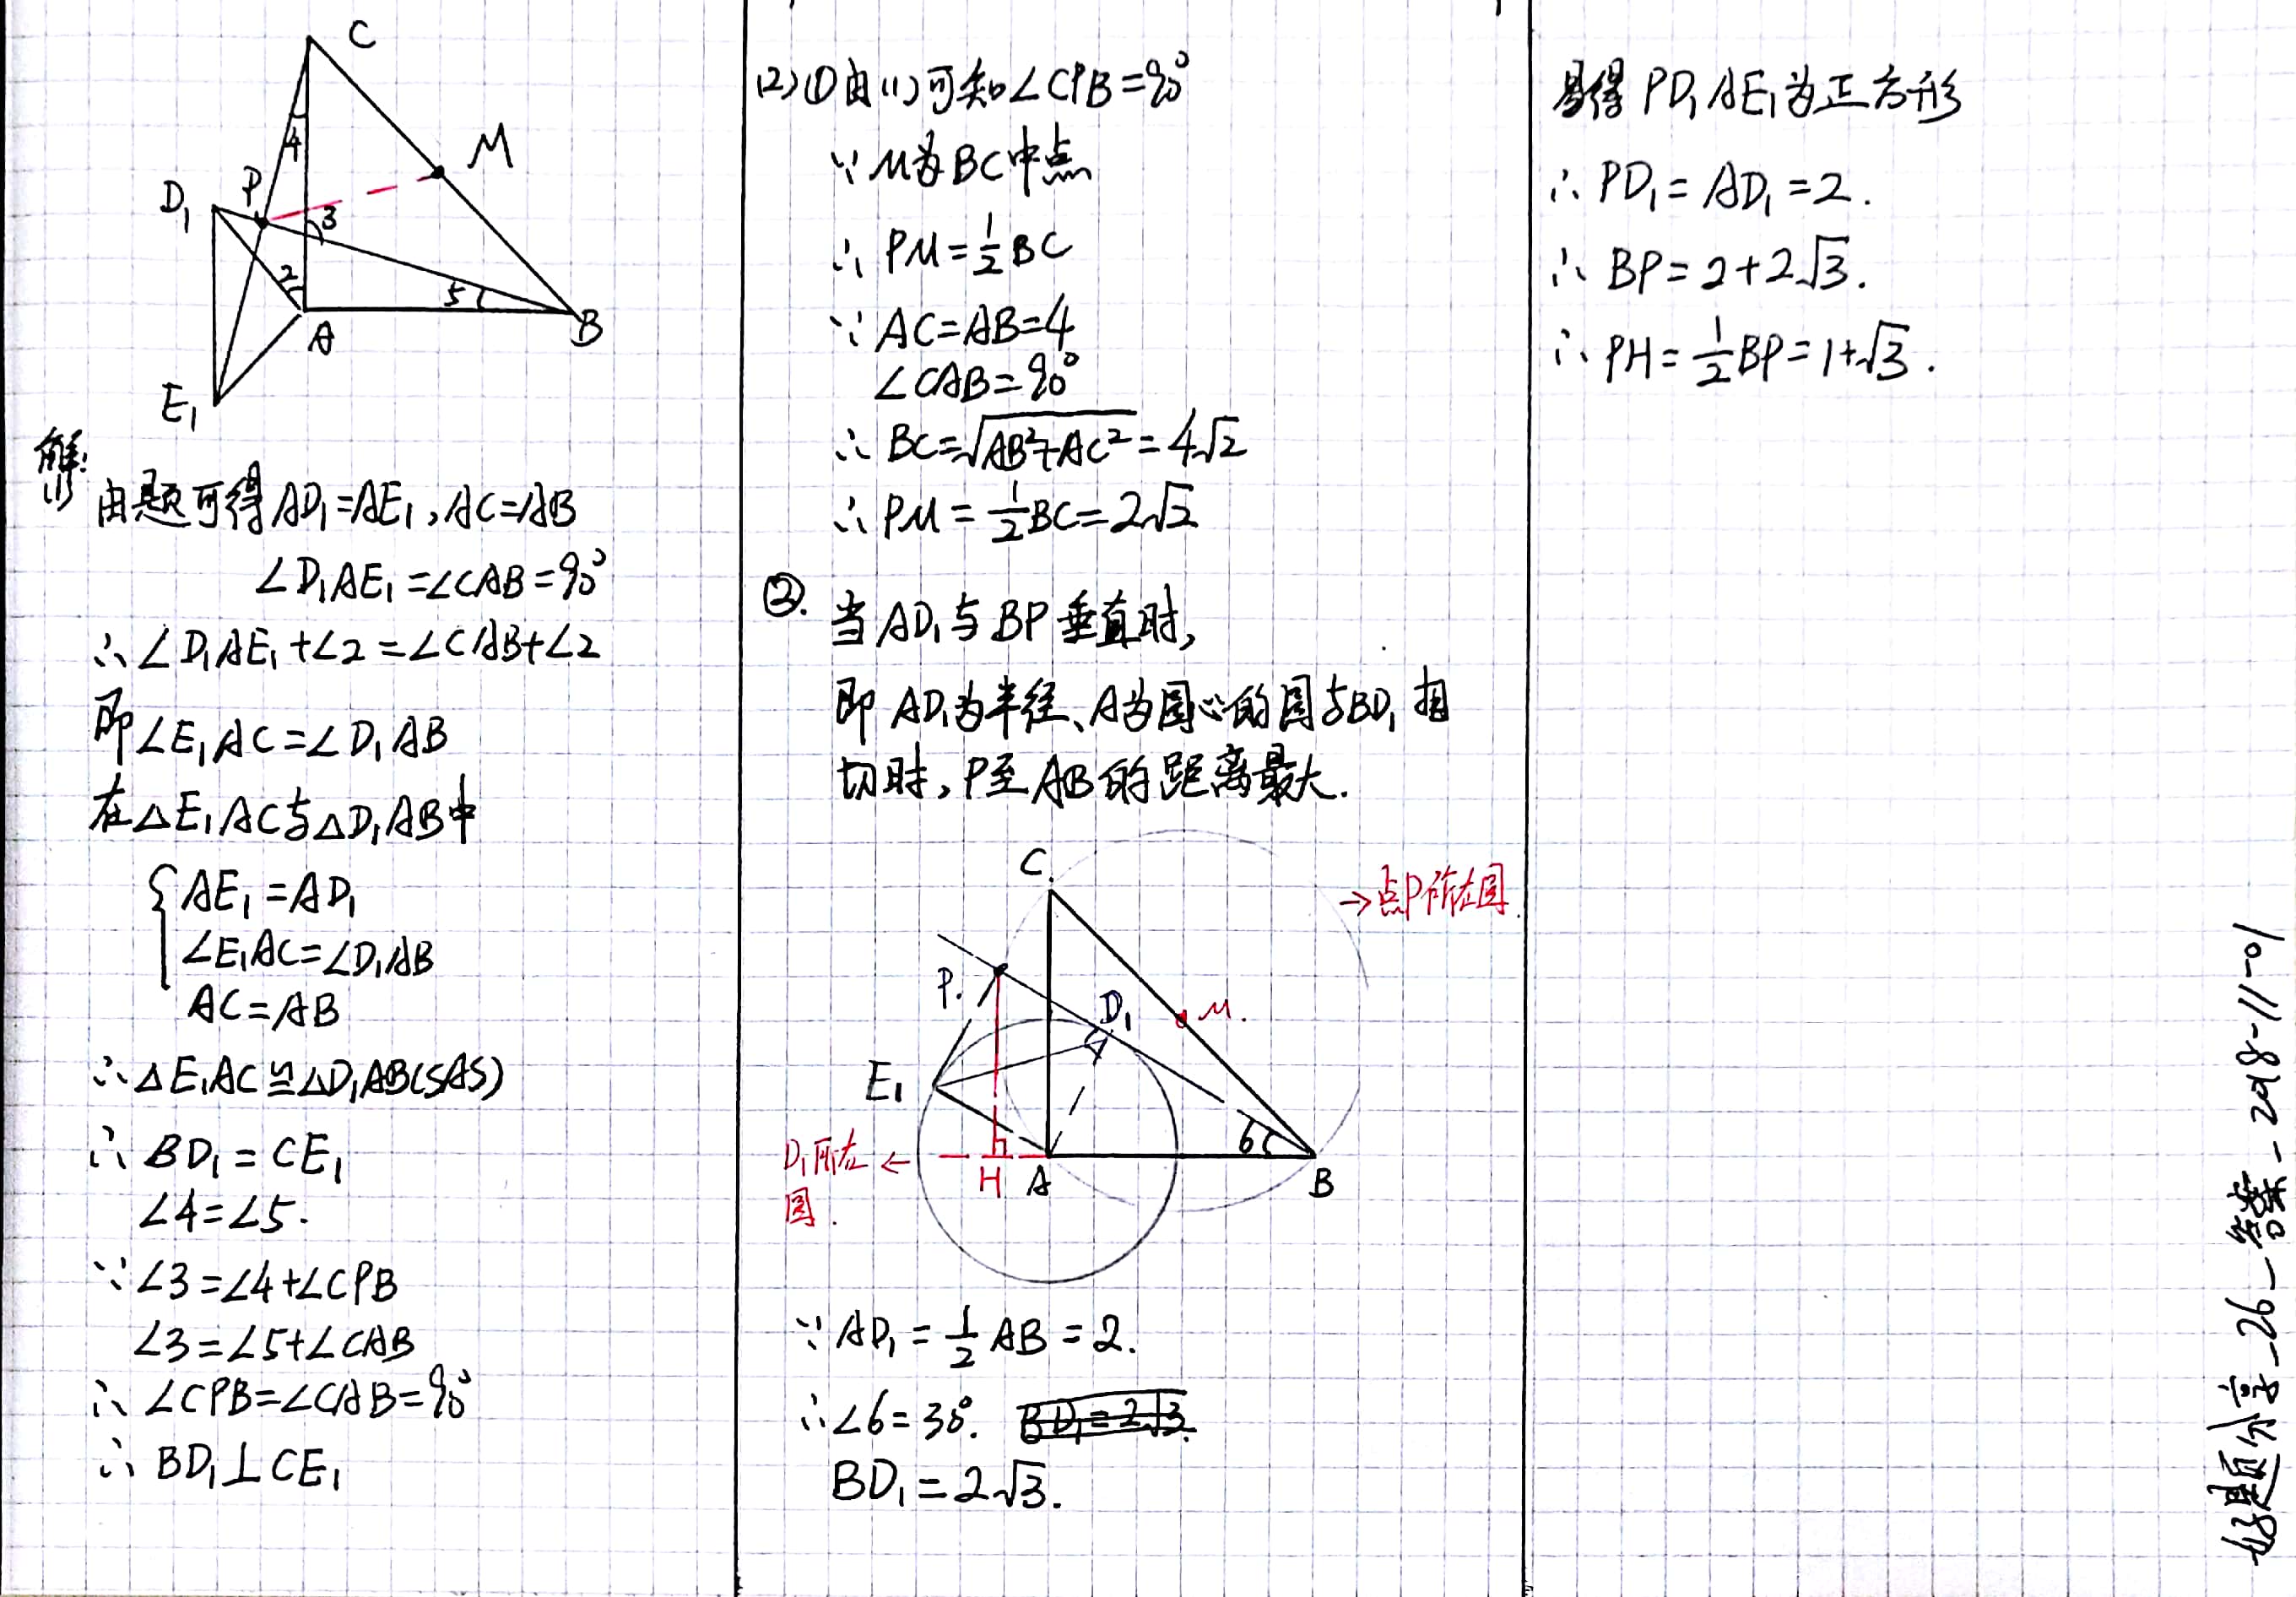 C
M
4
P
D₁
3
2
5
A
B
E₁
解:
(1)
由题可得AD₁=AE₁,AC=AB
∠D₁AE₁=∠CAB=90°
∴∠D₁AE₁+∠2=∠CAB+∠2
即∠E₁AC=∠D₁AB
在△E₁AC与△D₁AB中
AE₁=AD₁
∠E₁AC=∠D₁AB
AC=AB
∴△E₁AC≌△D₁AB(SAS)
∴BD₁=CE₁
∠4=∠5.
∵∠3=∠4+∠CPB
∠3=∠5+∠CAB
∴∠CPB=∠CAB=90°
∴BD₁⊥CE₁
(2)①由(1)可知∠CPB=90°
∵M为BC中点
∴PM=1/2BC
∵AC=AB=4
∠CAB=90°
∴BC=√(AB²+AC²)=4√2
∴PM=1/2BC=2√2
②.当AD₁与BP垂直时,
即AD₁为半径、A为圆心的圆与BD₁相
切时,P至AB的距离最大.
C.
→点P所在圆.
P.
D₁
M.
E₁
6
D₁所在←
圆.
H
A
B
∵AD₁=1/2AB=2.
∴∠6=30°. BD₁=2√3.
BD₁=2√3.
易得PD₁AE₁为正方形
∴PD₁=AD₁=2.
∴BP=2+2√3.
∴PH=1/2BP=1+√3.
好题分享_26_答案_2018-11-01